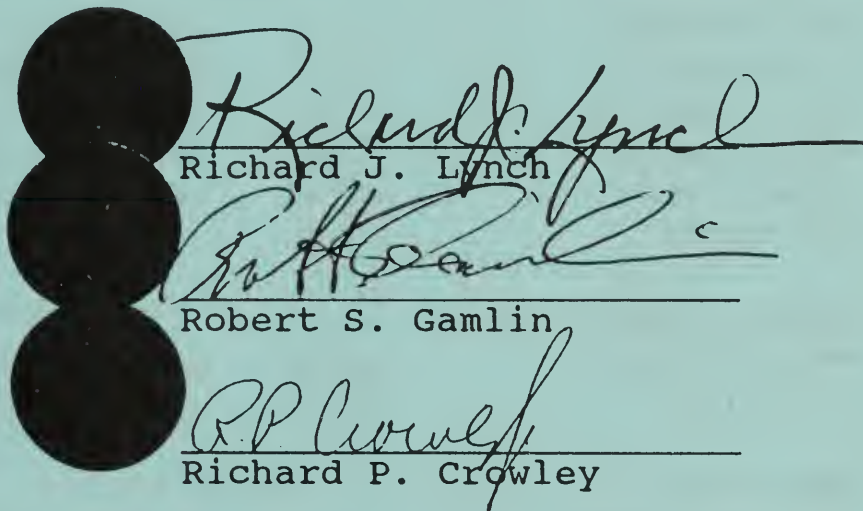 Richard J. Lynch
Richard J. Lynch
Robert S. Gamlin
R.P. Crowley
Richard P. Crowley